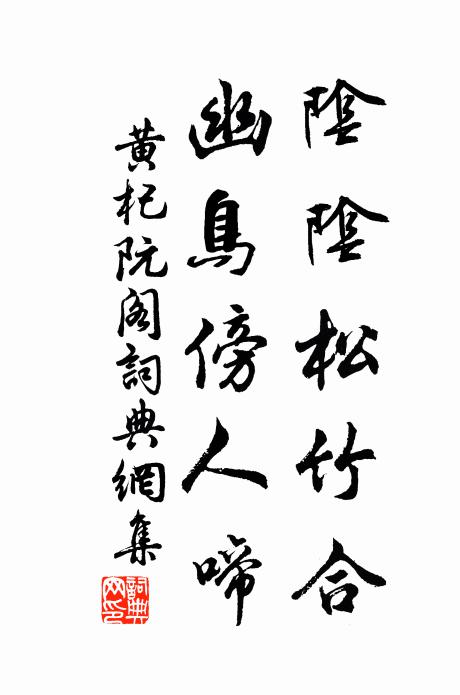 陰陰松竹合
幽鳥傍人啼
黄杞阮阁詞典網集
詞典網印